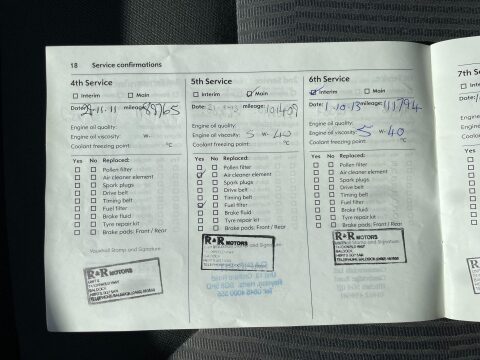 18 Service confirmations
4th Service
Interim Main
Date: 28.11.11 mileage: 89765
Engine oil quality:
Engine oil viscosity: W-
Coolant freezing point: °C
Yes No Replaced:
Pollen filter
Air cleaner element
Spark plugs
Drive belt
Timing belt
Fuel filter
Brake fluid
Tyre repair kit
Brake pads: Front / Rear
Vauxhall Stamp and Signature
R&R MOTORS
BALDOCK
5th Service
Interim Main
Date: mileage: 101409
Engine oil quality:
Engine oil viscosity: 5 W- 40
Coolant freezing point: °C
Yes No Replaced:
Pollen filter
Air cleaner element
Spark plugs
Drive belt
Timing belt
Fuel filter
Brake fluid
Tyre repair kit
Brake pads: Front / Rear
R&R MOTORS
BALDOCK
6th Service
Interim Main
Date: 1.10.13 mileage: 111794
Engine oil quality:
Engine oil viscosity: 5 W- 40
Coolant freezing point: °C
Yes No Replaced:
Pollen filter
Air cleaner element
Spark plugs
Drive belt
Timing belt
Fuel filter
Brake fluid
Tyre repair kit
Brake pads: Front / Rear
R&R MOTORS
BALDOCK
7th S